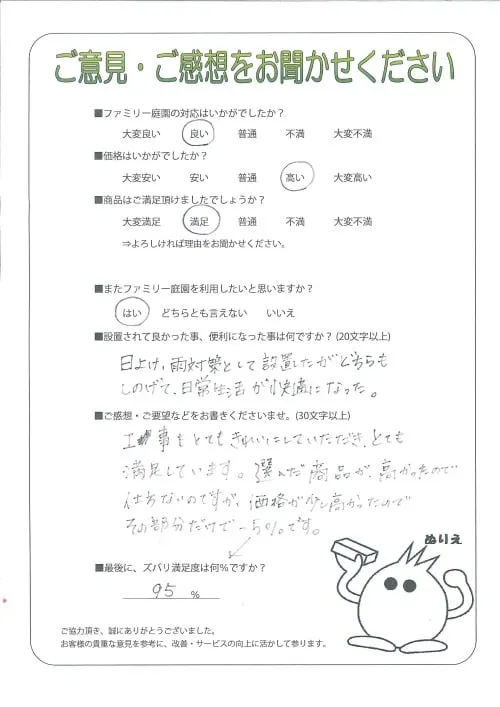 ご意見・ご感想をお聞かせください
■ファミリー庭園の対応はいかがでしたか？
大変良い　良い　普通　不満　大変不満
■価格はいかがでしたか？
大変安い　安い　普通　高い　大変高い
■商品はご満足頂けましたでしょうか？
大変満足　満足　普通　不満　大変不満
⇒よろしければ理由をお聞かせください。
■またファミリー庭園を利用したいと思いますか？
はい　どちらとも言えない　いいえ
■設置されて良かった事、便利になった事は何ですか？(20文字以上)
日よけ，雨対策として設置したがどちらも
しのげて、日常生活が快適になった。
■ご感想・ご要望などをお書きくださいませ。(30文字以上)
工事もとてもきれいにしていただき、とても
満足しています。選んだ商品が、高かったので
仕方ないのですが、価格が少し高かったので
その部分だけで−5%です。
■最後に、ズバリ満足度は何%ですか？
95 %
ぬりえ
ご協力頂き、誠にありがとうございました。
お客様の貴重な意見を参考に、改善・サービスの向上に活かして参ります。